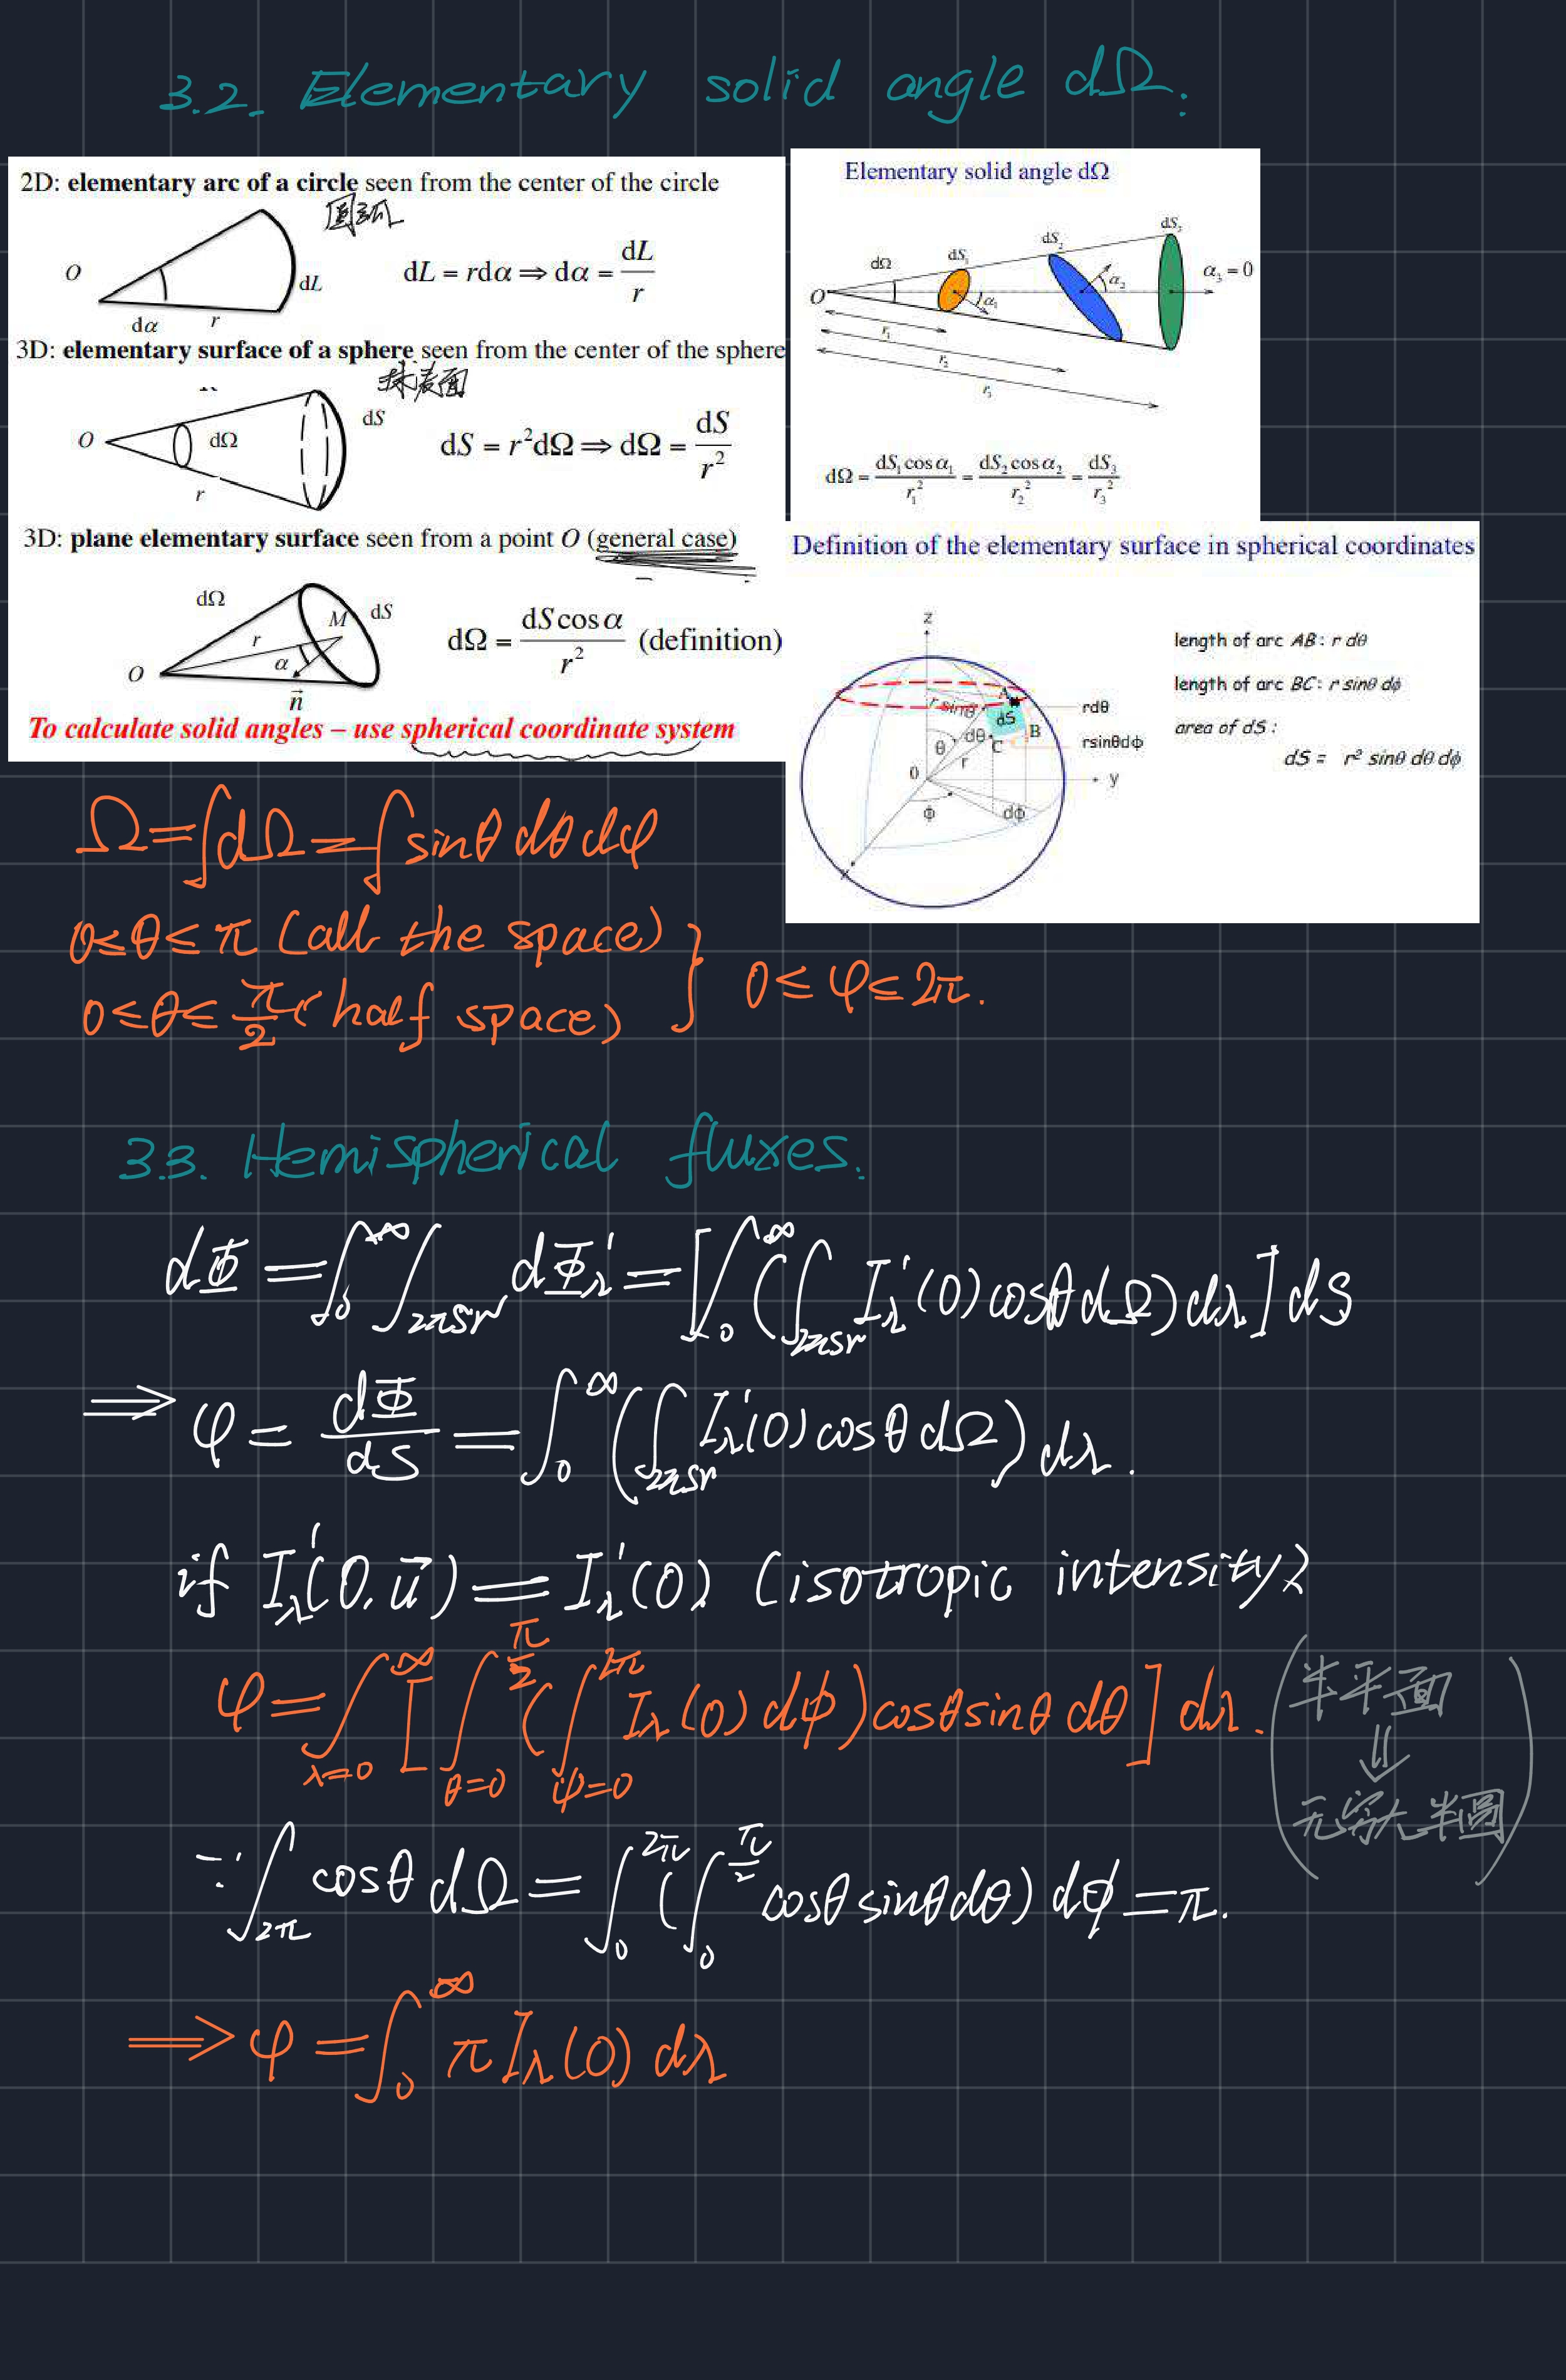 3.2. Elementary solid angle dΩ.
2D: elementary arc of a circle seen from the center of the circle
圆弧
O
dL
dα
r
dL = rdα ⇒ dα = dL/r
3D: elementary surface of a sphere seen from the center of the sphere
球表面
O
dΩ
dS
r
dS = r²dΩ ⇒ dΩ = dS/r²
3D: plane elementary surface seen from a point O (general case)
dΩ
M
dS
r
α
O
n⃗
dΩ = dS cos α / r² (definition)
To calculate solid angles – use spherical coordinate system
Elementary solid angle dΩ
dS₃
dS₂
dS₁
dΩ
α₃ = 0
α₂
O
α₁
r₁
r₂
r₃
dΩ = dS₁ cos α₁ / r₁² = dS₂ cos α₂ / r₂² = dS₃ / r₃²
Definition of the elementary surface in spherical coordinates
z
length of arc AB: r dθ
length of arc BC: r sinθ dϕ
area of dS :
dS = r² sinθ dθ dϕ
A
r sinθ
dS
rdθ
B
θ
dθ
C
rsinθdϕ
r
0
y
ϕ
dϕ
x
Ω=∫dΩ=∫sinθ dθ dφ
0≤θ≤π (all the space)
0≤θ≤π/2 (half space)
} 0≤φ≤2π.
3.3. Hemispherical fluxes.
dΦ=∫₀^{+∞}∫_{2πsr} dΦ'_λ=[∫₀^∞(∫_{2πsr} I'_λ(0)cosθdΩ)dλ]dS
⟹ φ= dΦ/dS =∫₀^∞(∫_{2πsr} I'_λ(0)cosθdΩ)dλ.
if I'_λ(0,u⃗)=I'_λ(0) (isotropic intensity)
φ=∫_{λ=0}^∞[∫_{θ=0}^{π/2}(∫_{ϕ=0}^{2π} I_λ(0)dϕ)cosθsinθdθ]dλ.
半平面
⇓
无穷大半圆
∵∫_{2π} cosθdΩ=∫₀^{2π}(∫₀^{π/2}cosθsinθdθ)dϕ=π.
⟹φ=∫₀^∞ πI_λ(0)dλ